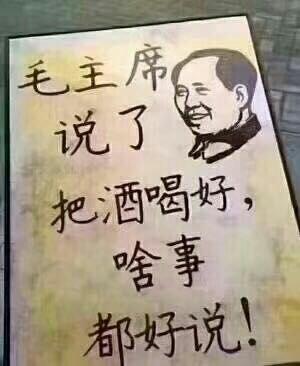 毛主席
说了
把酒喝好，
啥事
都好说！